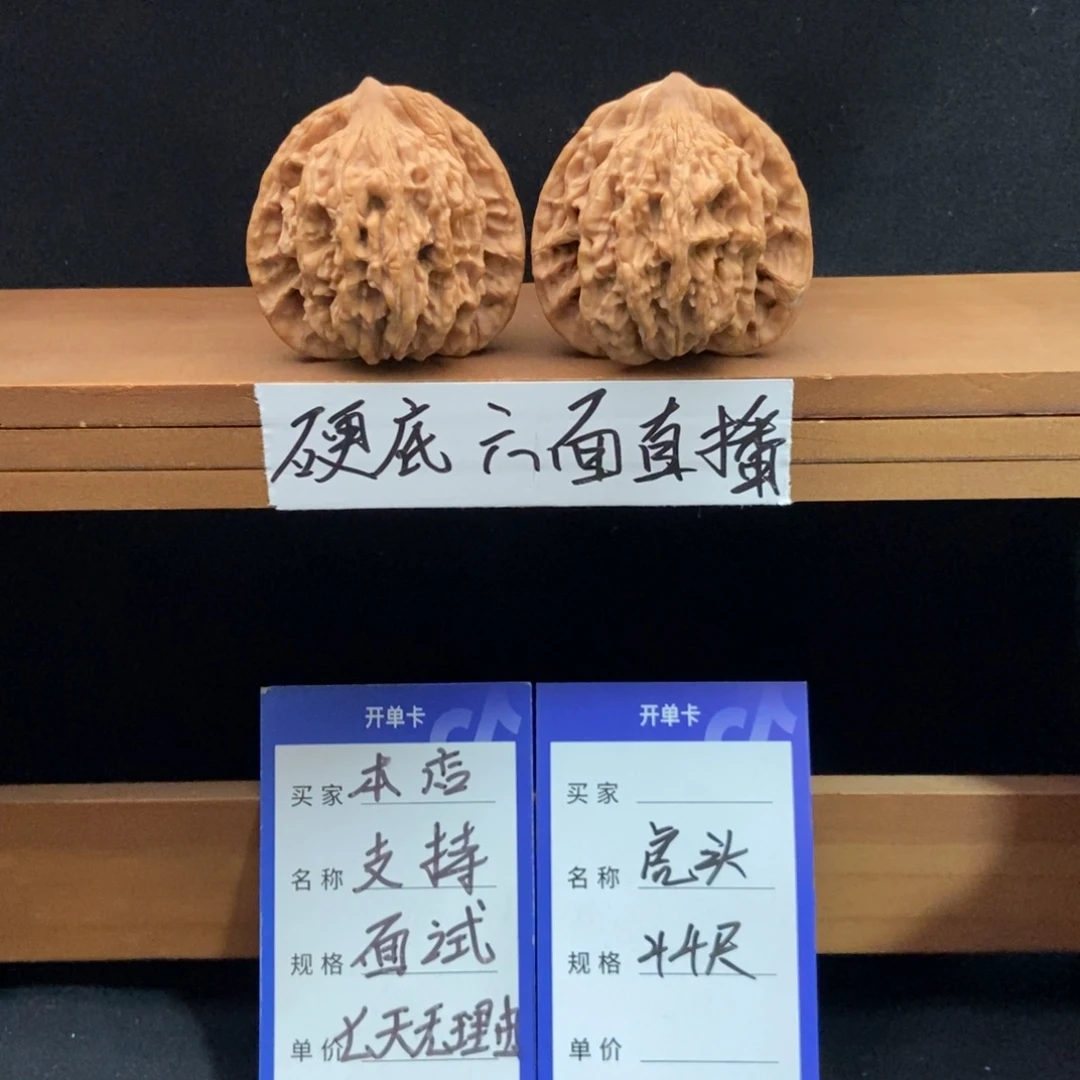 硬底 六面直播
开单卡
买家 本店
名称 支持
规格 面试
单价 七天无理由
开单卡
买家
名称 虎头
规格 44尺
单价